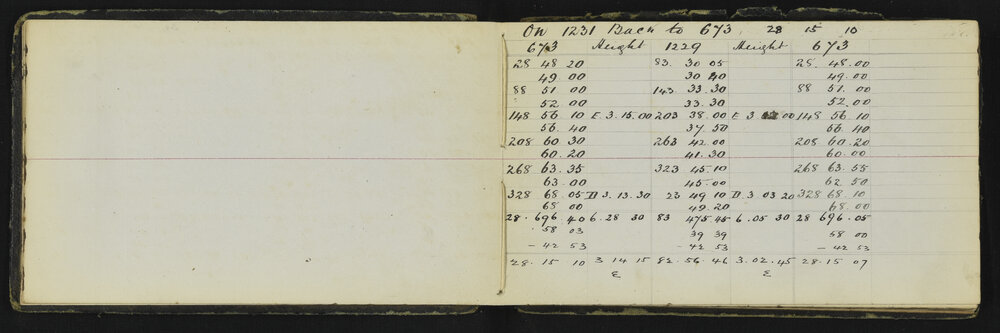 On 1231 Back to 673, 28 15 10
673 Height 1229 Height 673
28 48 20 83. 30 05 28. 48.00
49 00 30 40 49.00
88 51 00 143 33.30 88 51.00
52 00 33.30 52.00
148 56 10 E. 3. 15.00 203 38.00 E 3. 00 148 56.10
56 40 37.50 56 40
208 60 30 263 42.00 208 60.20
60.20 41.30 60.00
268 63.35 323 45.10 268 63.55
63.00 45.00 62 50
328 68.05 D 3. 13.30 23 49 10 D. 3 03 20 328 68.10
68 00 49.20 68.00
28. 696 40 6. 28 30 83 475 45 6. 05 30 28 696.05
58 03 39 39 58 00
- 42 53 - 42 53 - 42 53
28. 15. 10 3 14 15 82. 56. 46 3. 02. 45 28. 15 07
E E